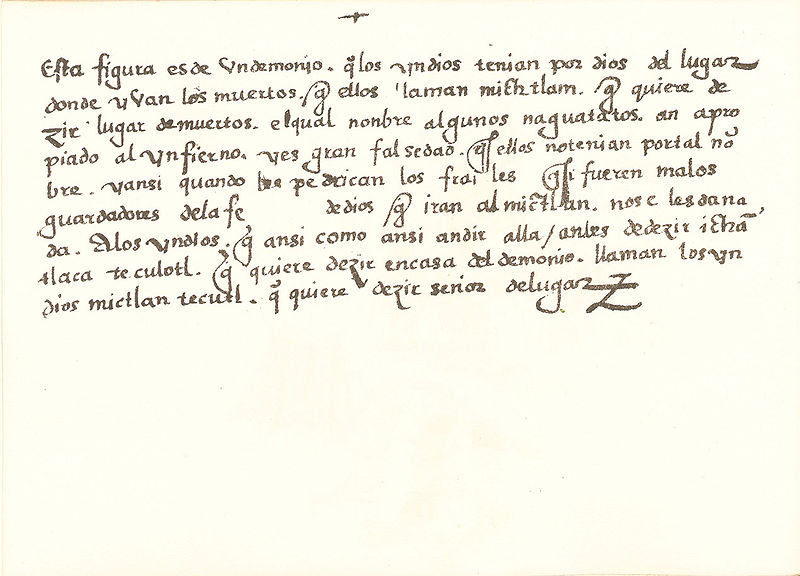 Esta figura es de vn demonio. q̃ los yndios tenian por dios del lugar
donde yvan los muertos. q̃ ellos llaman micħtlam. q̃ quiere de
zir lugar de muertos. el qual nonbre algunos naguatatos. an apro
piado al ynfierno. yes gran falsedad. q̃ ellos notenian portal nõ
bre. yansi quando les pedrican los frailes q̃ si fueren malos
guardadores dela fe de dios q̃ iran al mictlan. nose lesdana
da. Alos yndios. q̃ ansi como ansi an dir alla / antes dedezir ichã
tlaca teculotl. q̃ quiere dezir encasa del demonio. llaman los yn
dios mictlan tecutl. q̃ quiere dezir señor delugar